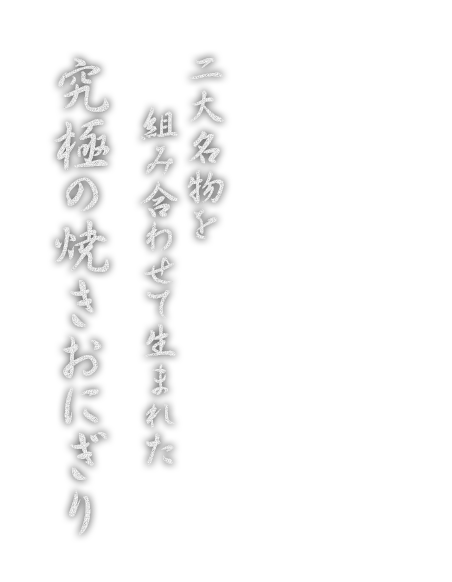 二大名物を
組み合わせて生まれた
究極の焼きおにぎり